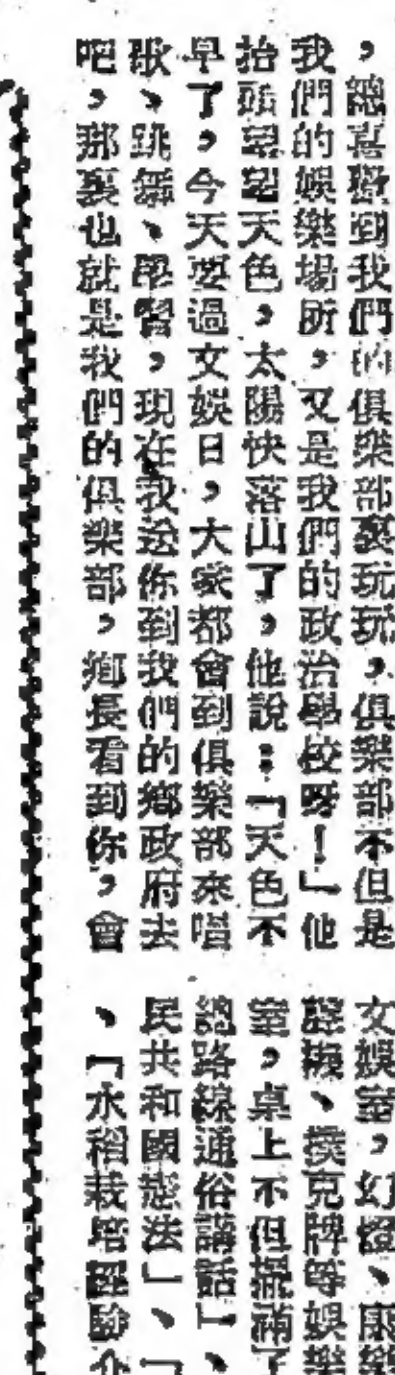 ，總喜歡到我們的俱樂部裏玩玩，俱樂部不但是
我們的娛樂場所，又是我們的政治學校呀！」他
抬頭望望天色，太陽快落山了，他說：「天色不
早了，今天要過文娛日，大家都會到俱樂部來唱
歌、跳舞、學習，現在我送你到我們的鄉政府去
吧，那裏也就是我們的俱樂部，鄉長看到你，會
文娛室，幻燈、康樂
棋、撲克牌等娛樂
室，桌上不但擺滿了
總路線通俗講話」、
民共和國憲法」、「
、「水稻栽培經驗介